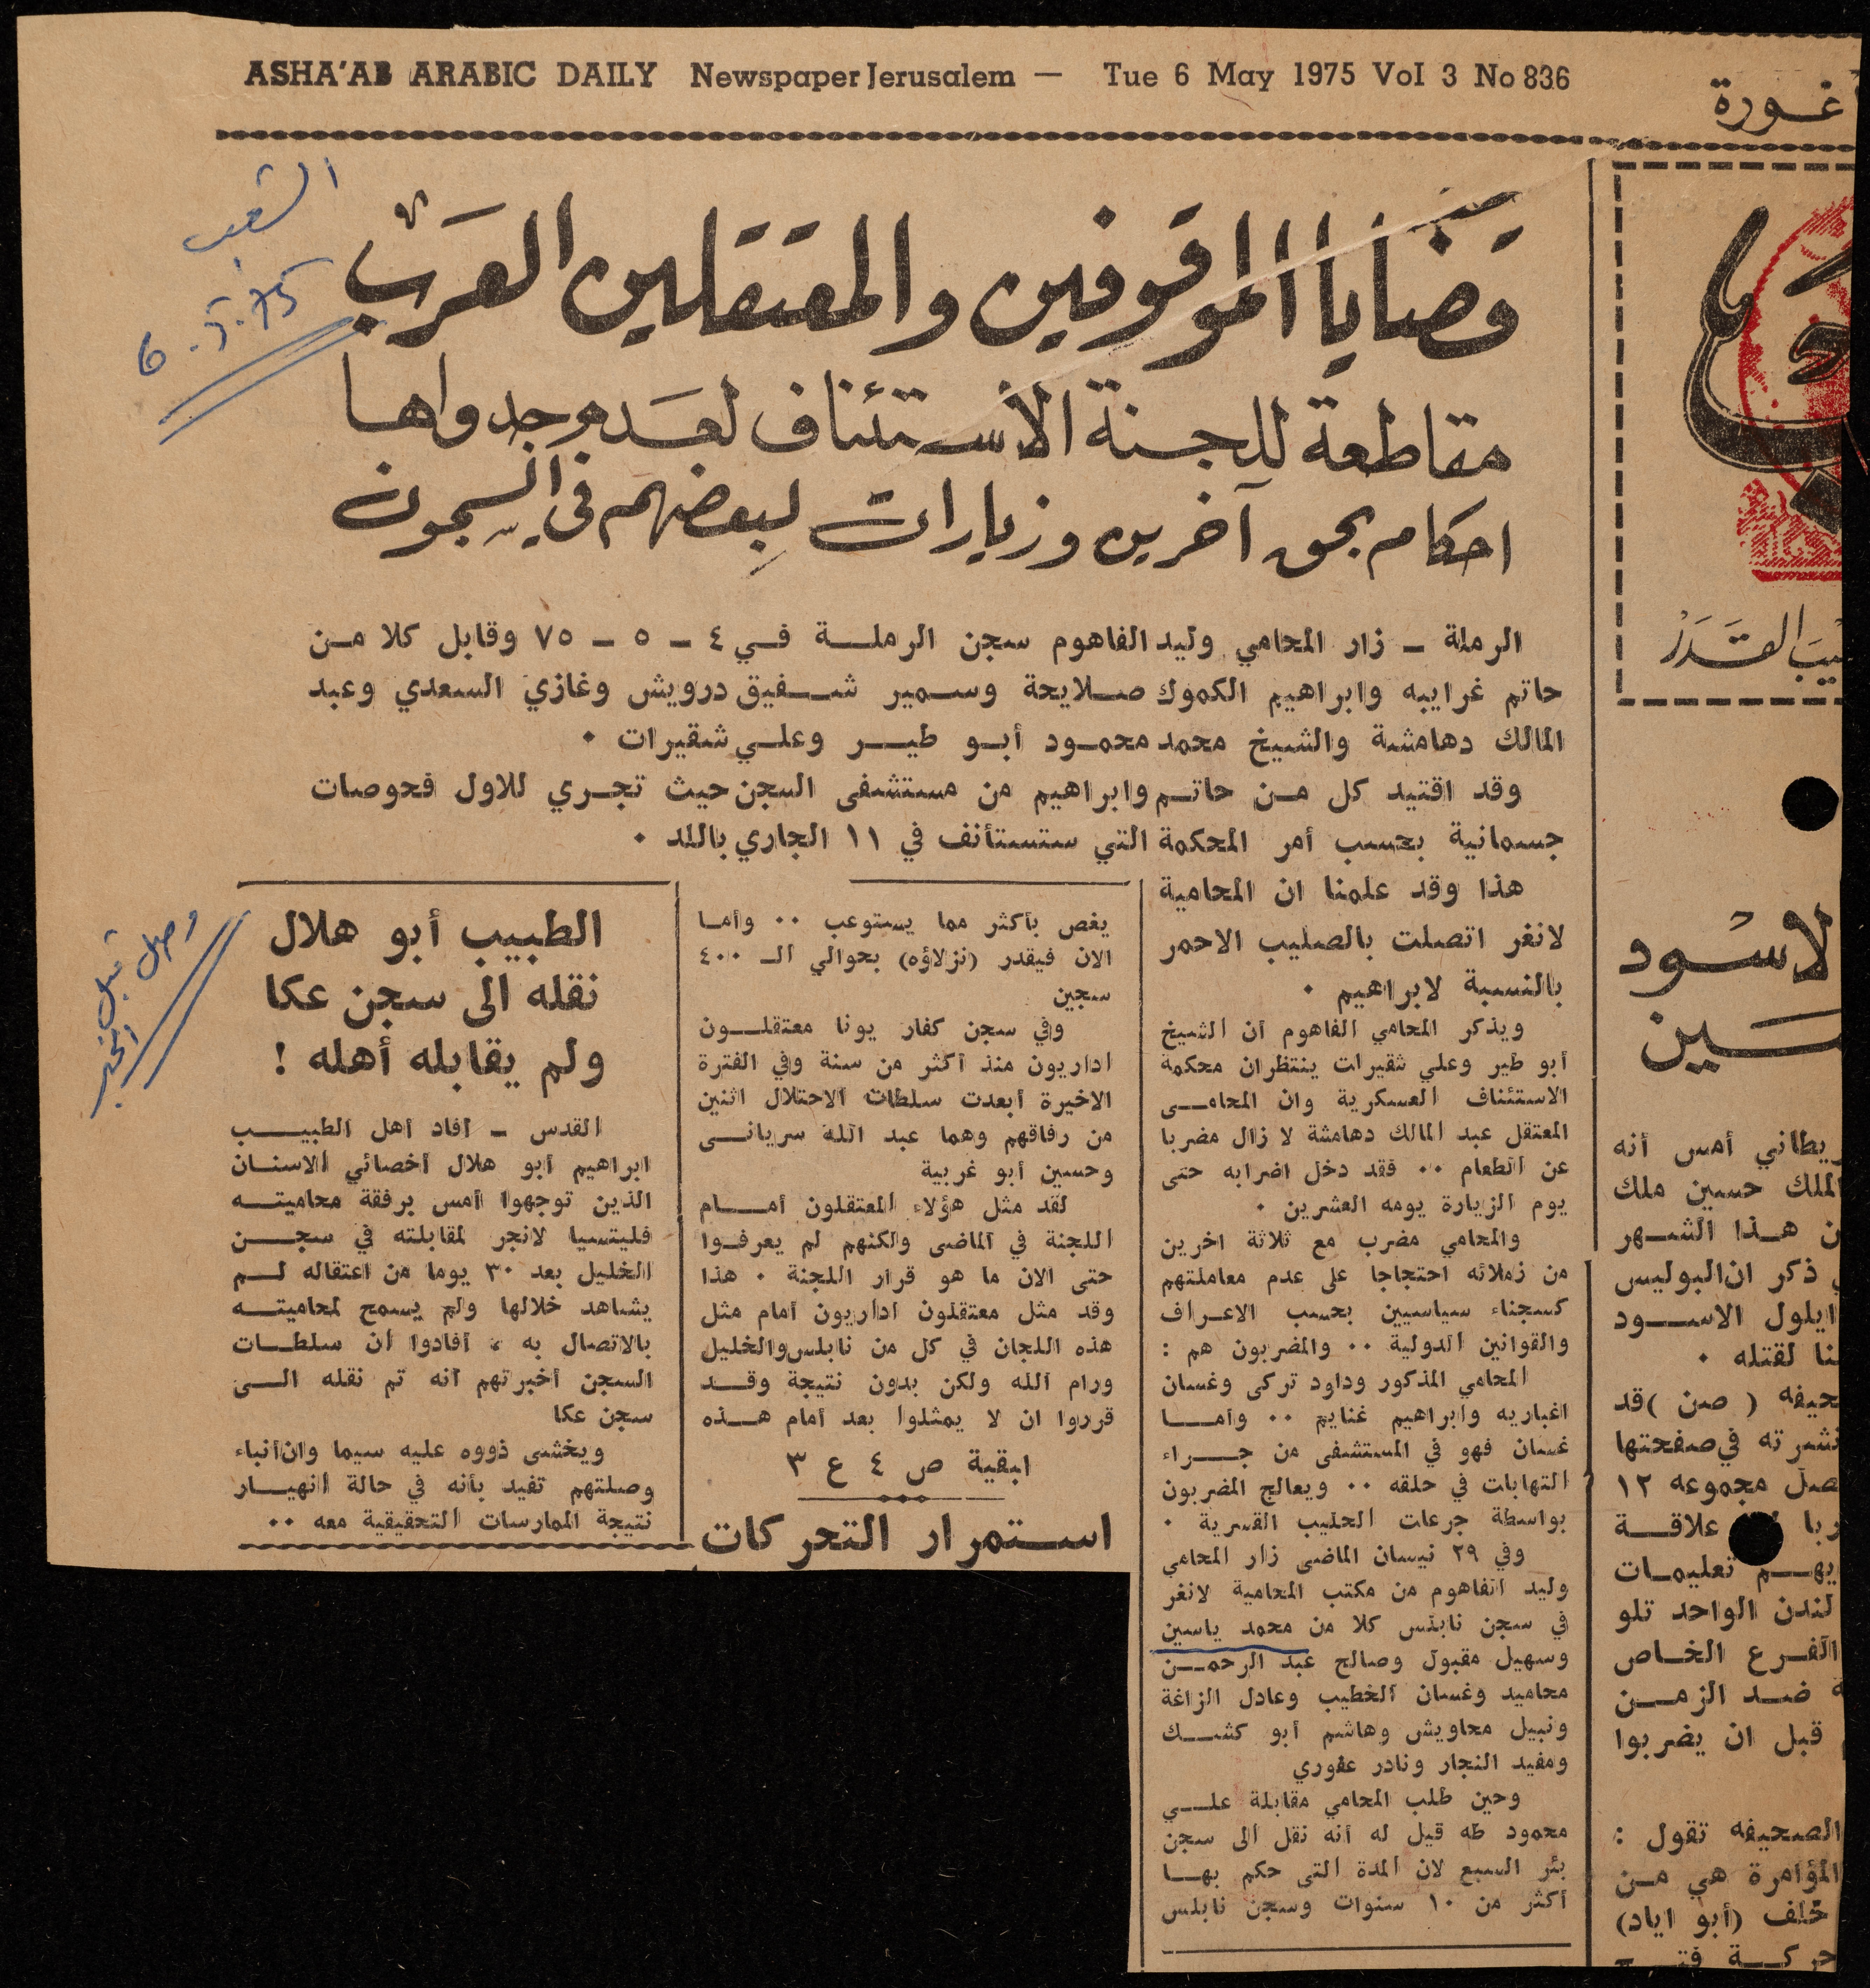 ASHA'AB ARABIC DAILY Newspaper Jerusalem — Tue 6 May 1975 Vol 3 No 836
الشعب
6.5.75
قضايا الموقوفين والمعتقلين العرب
مقاطعة للجنة الأستئناف لعدم جدواها
احكام بحق آخرين وزيارات لبعضهم في السجون
الرملة ـ زار المحامي وليد الفاهوم سجن الرملـــة فـــي ٤ ـ ٥ ـ ٧٥ وقابل كلا مـــن
حاتم غرايبه وابراهيم الكموك صـــلايحة وســمير شــــفيق درويش وغازي السعدي وعبد
المالك دهامشة والشيخ محمد محمــود أبــو طيــــر وعلــي شقيرات ٠
وقد اقتيد كل مــن حاتــم وابراهيم من مستشفى السجن حيث تجــري للاول فحوصات
جسمانية بحسب أمر المحكمة التي ستستأنف في ١١ الجاري باللد ٠
هذا وقد علمنا ان المحامية
لانغر اتصلت بالصليب الاحمر
بالنسبة لابراهيم ٠
ويذكر المحامي الفاهوم أن الشيخ
أبو طير وعلي شقيرات ينتظران محكمة
الاستئناف العسكرية وان المحامــى
المعتقل عبد المالك دهامشة لا زال مضربا
عن الطعام ٠٠ فقد دخل اضرابه حتى
يوم الزيارة يومه العشرين ٠
والمحامي مضرب مع ثلاثة اخرين
من زملائه احتجاجا على عدم معاملتهم
كسجناء سياسيين بحسب الاعــراف
والقوانين الدولية ٠٠ والمضربون هم :
المحامي المذكور وداود تركى وغسان
اغباريه وابراهيم غنايم ٠٠ وامـــا
غسان فهو في المستشفى من جــــراء
التهابات في حلقه ٠٠ ويعالج المضربون
بواسطة جرعات الحليب القسرية ٠
وفي ٢٩ نيسان الماضى زار المحامي
وليد الفاهوم من مكتب المحامية لانغر
في سجن نابلس كلا من محمد ياسين
وسهيل مقبول وصالح عبد الرحمـــن
محاميد وغسان الخطيب وعادل الزاغة
ونبيل محاويش وهاشم أبو كشـــك
ومفيد النجار ونادر عفوري
وحين طلب المحامي مقابلة علـــي
محمود طه قيل له أنه نقل الى سجن
بئر السبع لان المدة التى حكم بهـــا
أكثر من ١٠ سنوات وسجن نابلس
يغص بأكثر مما يستوعب ٠٠ وأمـا
الان فيقدر (نزلاؤه) بحوالي الـ ٤٠٠
سجين
وفي سجن كفار يونا معتقلــــون
اداريون منذ أكثر من سنة وفي الفترة
الاخيرة أبعدت سلطات الاحتلال اثنين
من رفاقهم وهما عبد الله سريانـــى
وحسين أبو غربية
لقد مثل هؤلاء المعتقلون أمــــام
اللجنة في الماضى ولكنهم لم يعرفـوا
حتى الان ما هو قرار اللجنة ٠ هذا
وقد مثل معتقلون اداريون أمام مثل
هذه اللجان في كل من نابلس والخليل
ورام الله ولكن بدون نتيجة وقـــد
قرروا ان لا يمثلوا بعد أمام هـــذه
ابقية ص ٤ ع ٣
استـــمرار التحركات
وصل قبل الخبر
الطبيب أبو هلال
نقله الى سجن عكا
ولم يقابله أهله !
القدس ـ افاد أهل الطبيــــب
ابراهيم أبو هلال أخصائي الاسنــان
الذين توجهوا أمس برفقة محاميتــه
فليتسيا لانجر لمقابلته في سجــــن
الخليل بعد ٣٠ يوما من اعتقاله لــم
يشاهد خلالها ولم يسمح لمحاميتـــه
بالاتصال به ، أفادوا أن سلطــات
السجن أخبرتهم أنه تم نقله الـــى
سجن عكا
ويخشى ذووه عليه سيما وان أنباء
وصلتهم تفيد بأنه في حالة انهيـــار
نتيجة الممارسات التحقيقية معه ٠٠
غــورة
لاسود
ريطاني أمس أنه
الملك حسين ملك
ن هـــذا الشــهر
ذكر ان البوليس
ايلول الاســــود
لقتله ٠
حيفه ( صن ) قد
نشرته في صفحتها
صل مجموعه ١٢
علاقـــة
تعليمــات
لندن الواحد تلو
الفــرع الخــاص
ضـــد الزمـــن
قبل ان يضربوا
الصحيفه تقول :
المؤامرة هي مــن
خلف (أبو اياد)
حركـــة فتـــح